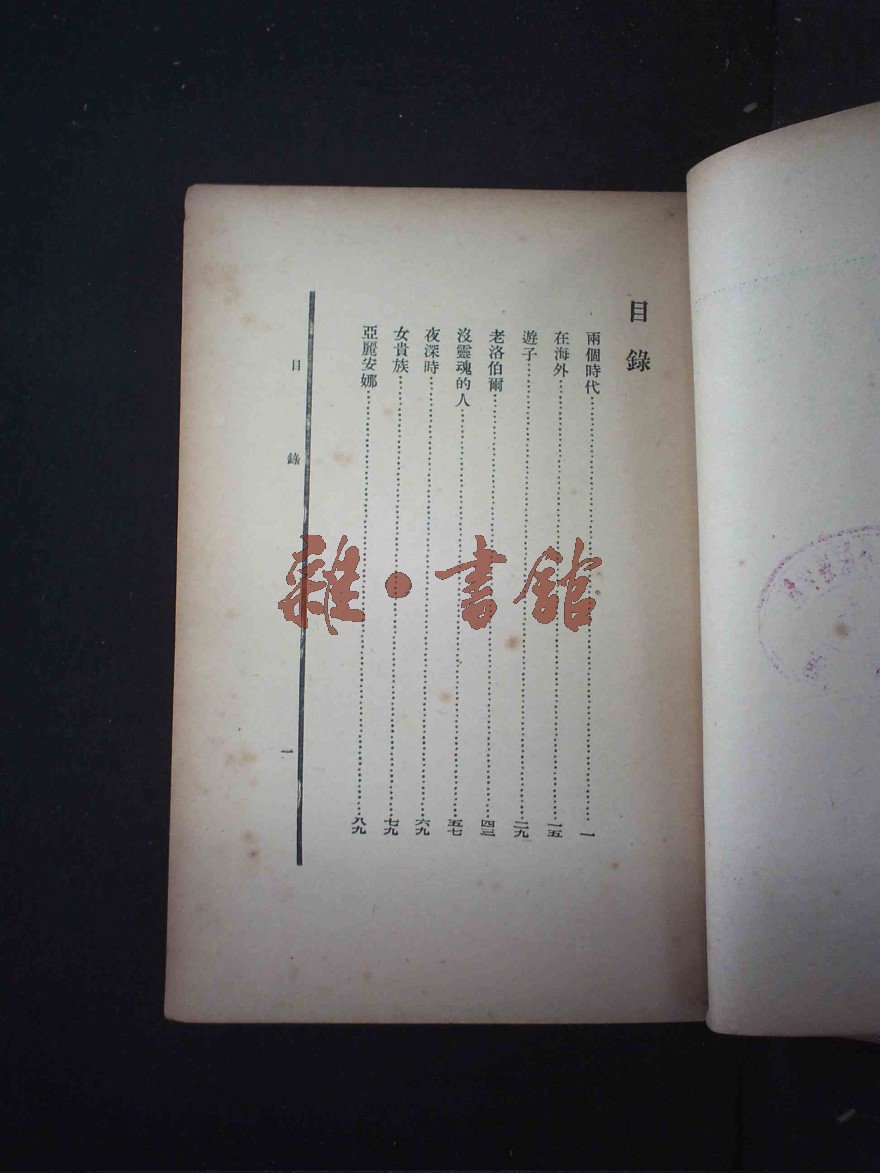 目錄
兩個時代……一
在海外……一五
遊子……二九
老洛伯爾……四三
沒靈魂的人……五七
夜深時……六九
女貴族……七九
亞麗安娜……八九
目錄
一
雜·書館